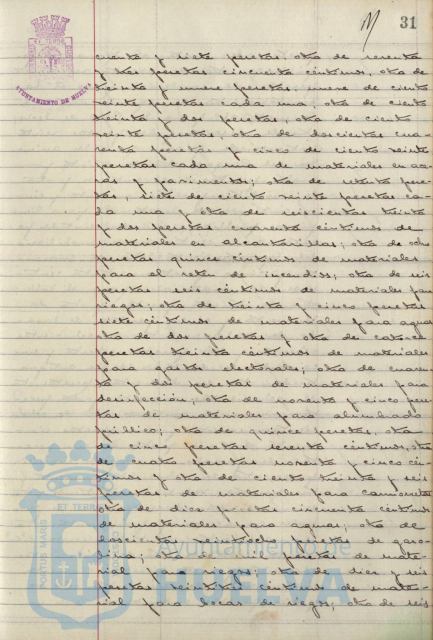 31
AYUNTAMIENTO DE HUELVA
cuenta y siete pesetas, otra de sesenta
y tres pesetas cincuenta céntimos, otra de
treinta y nueve pesetas, nueve de ciento
veinte pesetas cada una, otra de ciento
treinta y dos pesetas, otra de ciento
veinte pesetas, otra de doscientas cua-
renta pesetas y cinco de ciento veinte
pesetas cada una de materiales en ace-
ras y pavimentos; otra de ochenta pese-
tas, siete de ciento veinte pesetas ca-
da una y otra de seiscientas treinta
y dos pesetas cuarenta céntimos de
materiales en alcantarillas; otra de ocho
pesetas quince céntimos de materiales
para el retén de incendios; otra de seis
pesetas seis céntimos de materiales para
riegos; otra de treinta y cinco pesetas
siete céntimos de materiales para aguas
otra de dos pesetas y otra de catorce
pesetas treinta céntimos de materiales
para gastos electorales; otra de cuaren-
ta y dos pesetas de materiales para
desinfección; otra de noventa y cinco pese-
tas de materiales para alumbrado
público; otra de quince pesetas, otra
de cinco pesetas setenta céntimos, otra
de cuatro pesetas noventa y cinco cén-
timos y otra de ciento treinta y seis
pesetas de materiales para camionetas
otra de diez pesetas cincuenta céntimos
de materiales para aguas; otra de
doscientas veintiocho pesetas de gaso-
lina; otra de pesetas de mate-
rial para riegos, otra de diez y seis
pesetas veintitrés céntimos de mate-
rial para bocas de riegos, otra de seis
PORTUS MARIS ET TERRAE
Ayuntamiento de
HUELVA